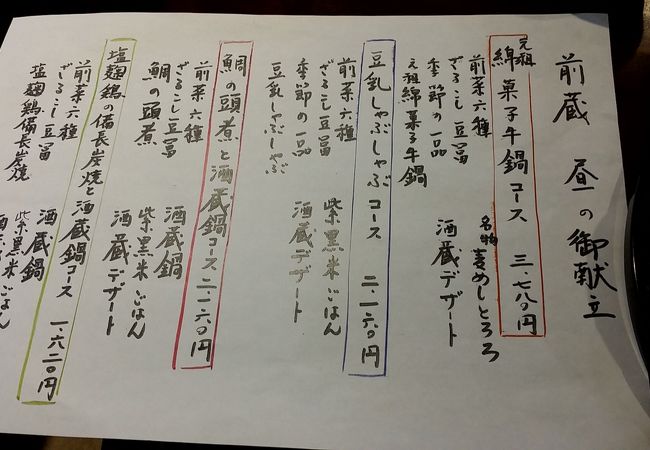 前蔵 昼の御献立
元祖 綿菓子牛鍋コース 三・七八〇円
前菜六種
ざるこし豆冨
季節の一品
元祖綿菓子牛鍋
名物麦めしとろろ
酒蔵デザート
豆乳しゃぶしゃぶコース 二・一六〇円
前菜六種
ざるこし豆冨
季節の一品
豆乳しゃぶしゃぶ
紫黒米ごはん
酒蔵デザート
鯛の頭煮と酒蔵鍋コース 二・一六〇円
前菜六種
ざるこし豆冨
鯛の頭煮
酒蔵鍋
紫黒米ごはん
酒蔵デザート
塩麹鶏の備長炭焼と酒蔵鍋コース 一・六二〇円
前菜六種
ざるこし豆冨
塩麹鶏備長炭焼
酒蔵鍋
紫黒米ごはん